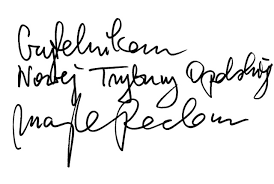 Czytelnikom
Nowej Trybuny Opolskiej